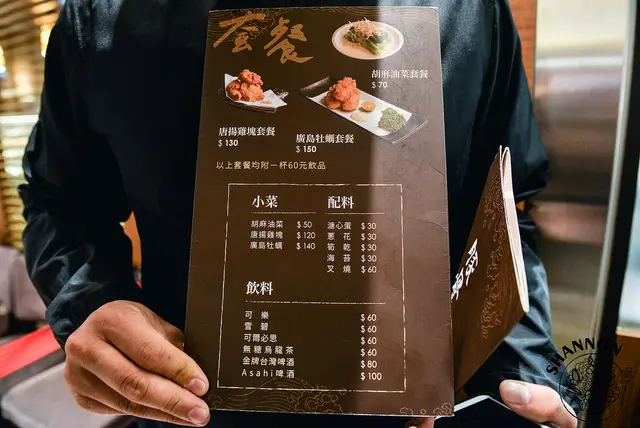 套餐
胡麻油菜套餐
$ 70
唐揚雞塊套餐
$ 130
廣島牡蠣套餐
$ 150
以上套餐均附一杯60元飲品
小菜
胡麻油菜 $ 50
唐揚雞塊 $ 120
廣島牡蠣 $ 140
配料
溏心蛋 $ 30
蔥花 $ 30
筍乾 $ 30
海苔 $ 30
叉燒 $ 60
飲料
可樂 $ 60
雪碧 $ 60
可爾必思 $ 60
無糖烏龍茶 $ 60
金牌台灣啤酒 $ 80
Asahi啤酒 $ 100
SHANNON